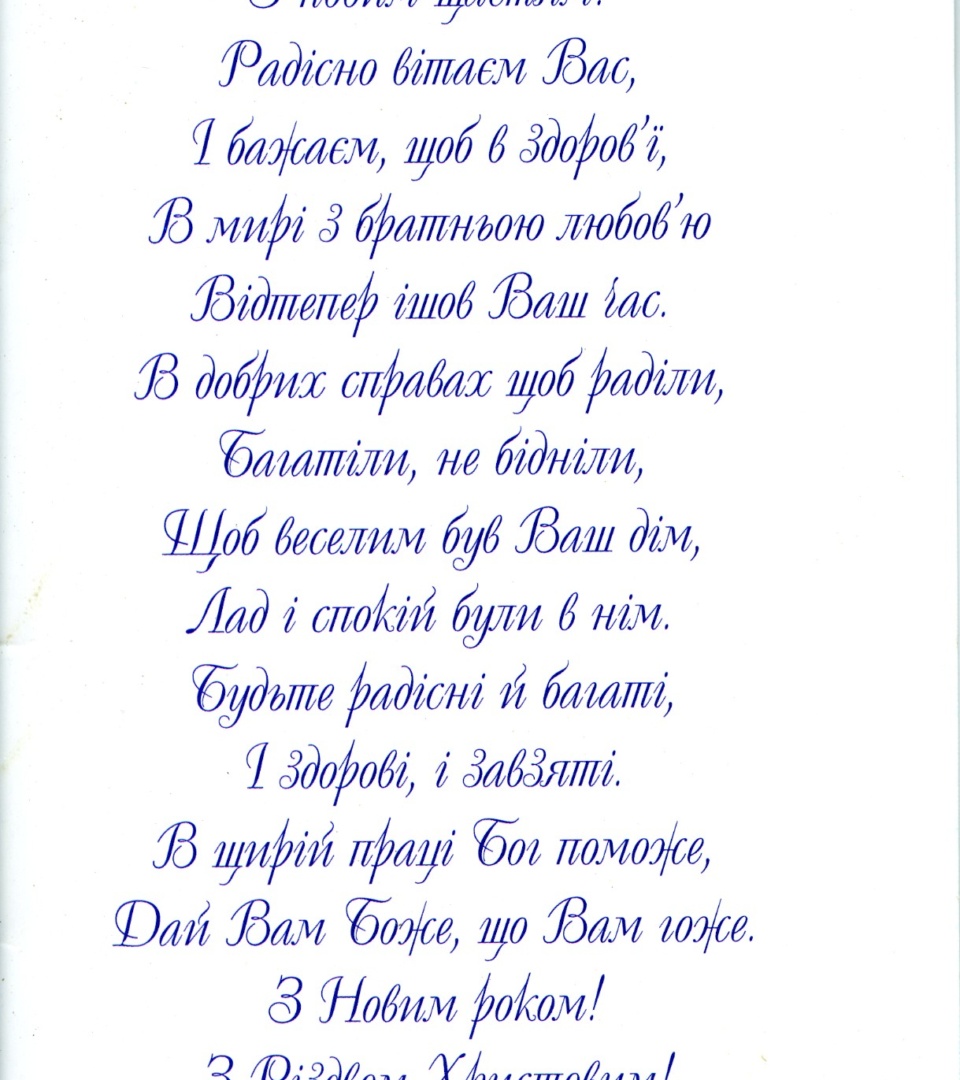 З новим щастям!
Радісно вітаєм Вас,
І бажаєм, щоб в здоров'ї,
В мирі з братньою любов'ю
Відтепер ішов Ваш час.
В добрих справах щоб раділи,
Багатіли, не бідніли,
Щоб веселим був Ваш дім,
Лад і спокій були в нім.
Будьте радісні й багаті,
І здорові, і завзяті.
В щирій праці Бог поможе,
Дай Вам Боже, що Вам гоже.
З Новим роком!
З Різдвом Христовим!